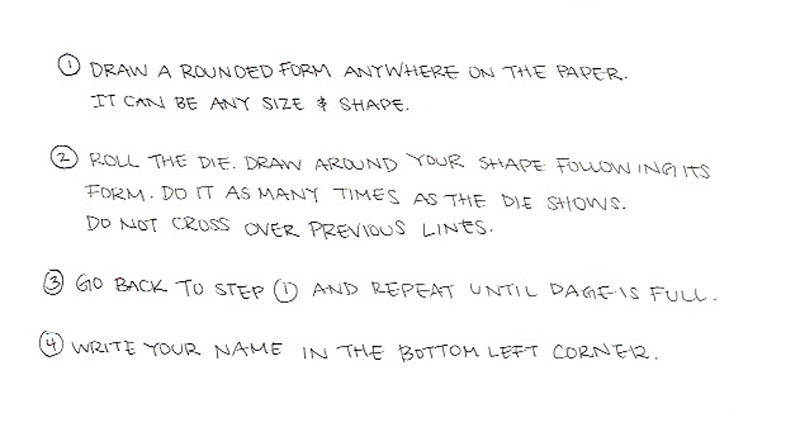 ① DRAW A ROUNDED FORM ANYWHERE ON THE PAPER.
IT CAN BE ANY SIZE & SHAPE.
② ROLL THE DIE. DRAW AROUND YOUR SHAPE FOLLOWING ITS
FORM. DO IT AS MANY TIMES AS THE DIE SHOWS.
DO NOT CROSS OVER PREVIOUS LINES.
③ GO BACK TO STEP ① AND REPEAT UNTIL PAGE IS FULL.
④ WRITE YOUR NAME IN THE BOTTOM LEFT CORNER.